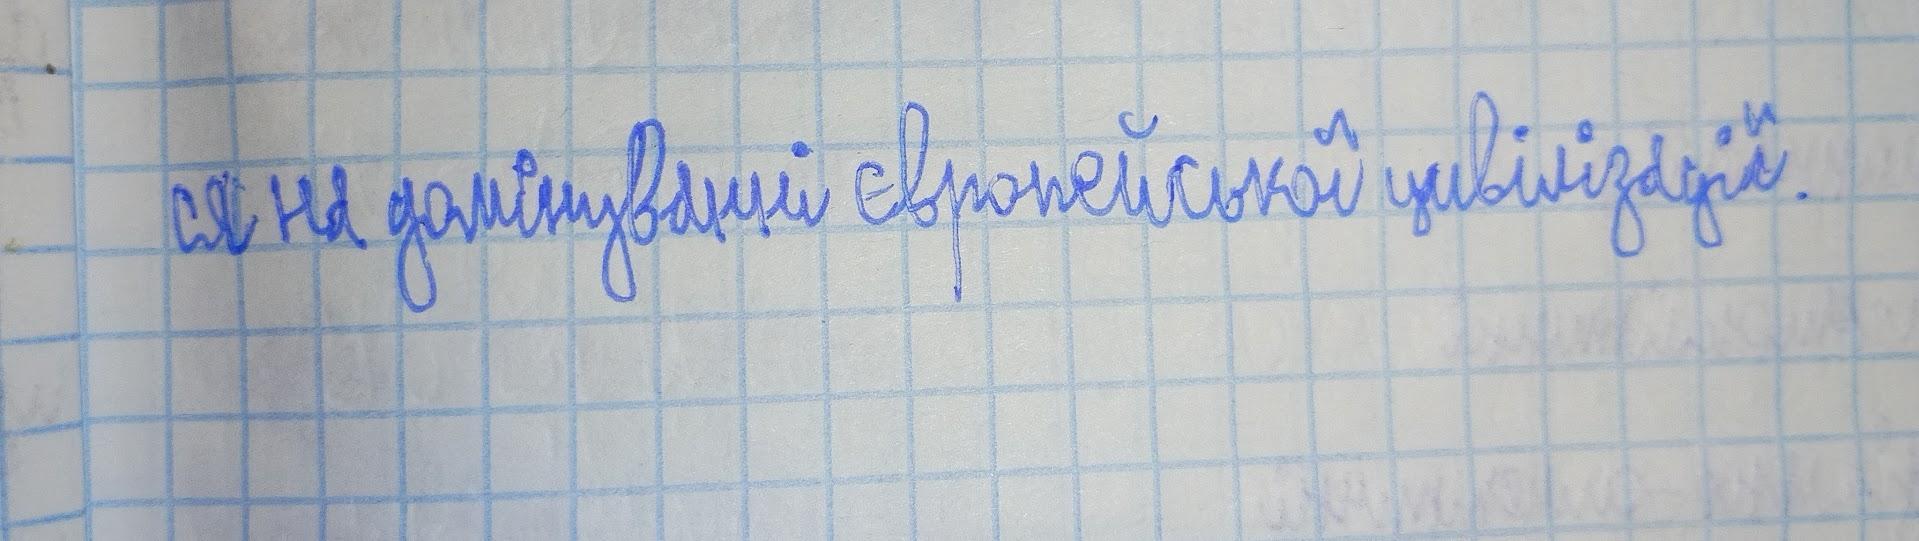 ся на домінуванні європейської цивілізації.